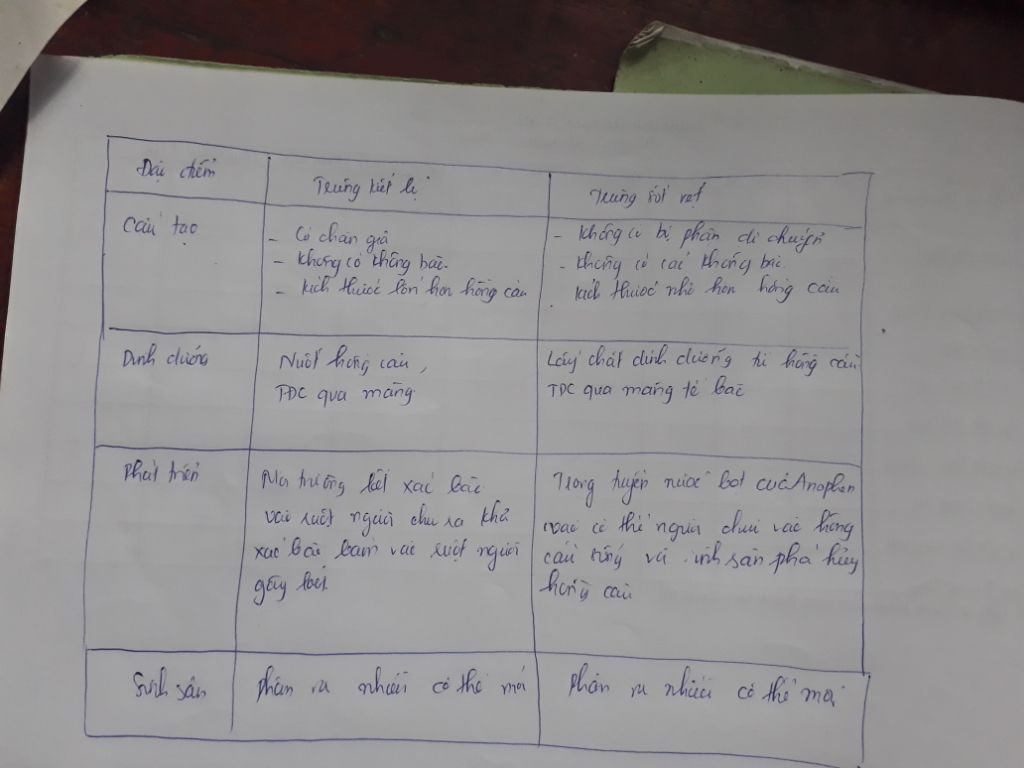 Đặc điểm
Trùng kiết lị
Trùng sốt rét
Cấu tạo
- Có chân giả
- Không có không bào.
- Kích thước lớn hơn hồng cầu
- Không có bộ phận di chuyển
- Không có các không bào.
Kích thước nhỏ hơn hồng cầu
Dinh dưỡng
Nuốt hồng cầu,
TĐC qua màng
Lấy chất dinh dưỡng từ hồng cầu
TĐC qua màng tế bào
Phát triển
Môi trường kết xác bào
vào ruột người chui ra khỏi
xác bào bám vào ruột người
gây loét
Trong tuyến nước bọt của Anophen
vào cơ thể người chui vào hồng
cầu sống và sinh sản phá hủy
hồng cầu
Sinh sản
phân ra nhiều cơ thể mới
phân ra nhiều cơ thể mới